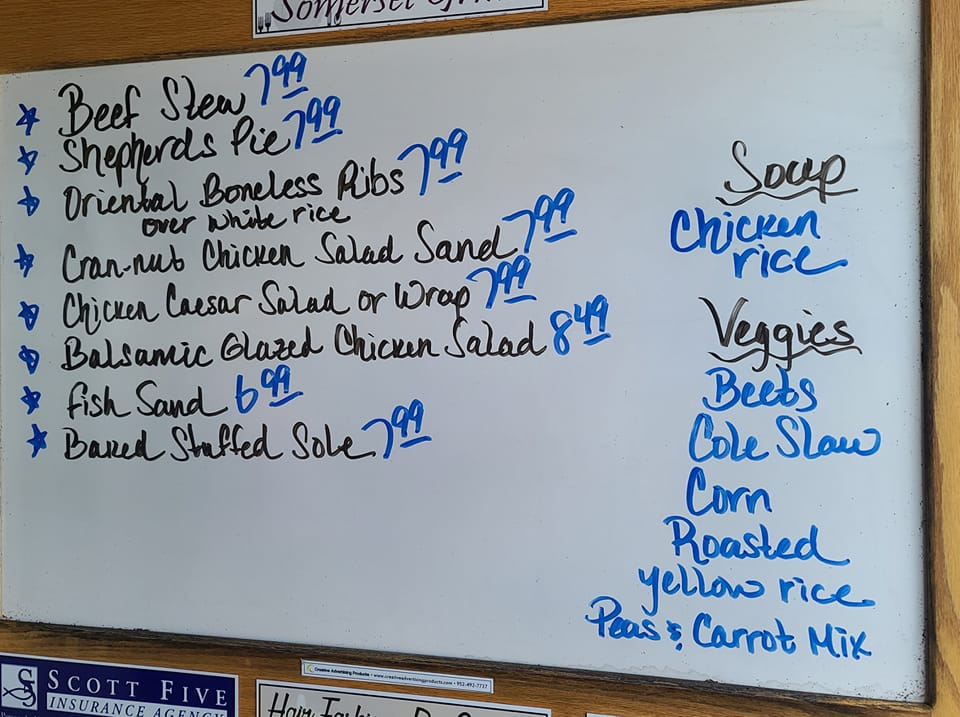 Somerset
Beef Stew 7.99
Shepherds Pie 7.99
Oriental Boneless Ribs 7.99
over white rice
Cran-nut Chicken Salad Sand 7.99
Chicken Caesar Salad or Wrap 7.99
Balsamic Glazed Chicken Salad 8.49
Fish Sand 6.99
Baked Stuffed Sole 7.99
Soup
Chicken
rice
Veggies
Beets
Cole Slaw
Corn
Roasted
yellow rice
Peas & Carrot Mix
Creative Advertising Products • www.creativeadvertisingproducts.com • 952-492-7737
SCOTT FIVE
INSURANCE AGENCY
Hair